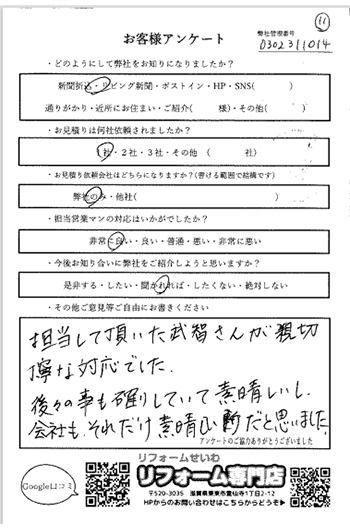 ⑪
お客様アンケート
弊社管理番号
0302311014
・どのようにして弊社をお知りになりましたか?
新聞折込・リビング新聞・ポストイン・HP・SNS( )
通りがかり・近所にお住まい・ご紹介( 様)・その他( )
・お見積りは何社依頼されましたか?
1社・2社・3社・その他 ( 社)
・お見積り依頼会社はどちらになりますか?(書ける範囲で結構です)
弊社のみ・他社( )
・担当営業マンの対応はいかがでしたか?
非常に良い・良い・普通・悪い・非常に悪い
・今後お知り合いに弊社をご紹介しようと思いますか?
是非する・したい・聞かれれば・したくない・絶対しない
・その他ご意見等ご自由にお書きください
担当して頂いた武智さんが親切
寧な対応でした.
後々の事も確りしていて素晴しいし.
会社も、それだけ素晴しい だと思いました.
アンケートのご協力ありがとうございました
Google口コミ
リフォームせいわ
リフォーム専門店
〒520-3035 滋賀県栗東市霊仙寺1丁目2-12
HPからのお問い合わせはこちらからどうぞ▶